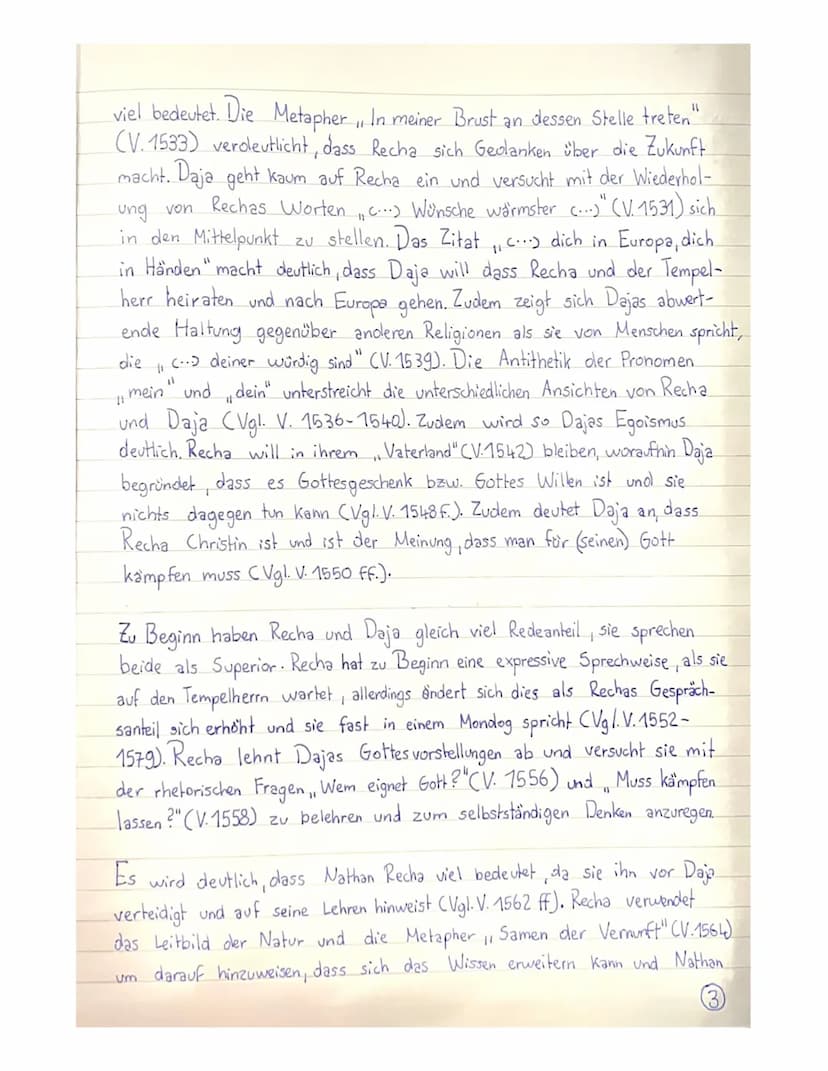 viel bedeutet. Die Metapher „In meiner Brust an dessen Stelle treten"
(V. 1533) verdeutlicht, dass Recha sich Gedanken über die Zukunft
macht. Daja geht kaum auf Recha ein und versucht mit der Wiederhol-
ung von Rechas Worten „(...) Wünsche wärmster (...)" (V. 1531) sich
in den Mittelpunkt zu stellen. Das Zitat „(...) dich in Europa, dich
in Händen" macht deutlich, dass Daja will dass Recha und der Tempel-
herr heiraten und nach Europa gehen. Zudem zeigt sich Dajas abwert-
ende Haltung gegenüber anderen Religionen als sie von Menschen spricht,
die „(...) deiner würdig sind" (V. 1539). Die Antithetik der Pronomen
„mein" und „dein" unterstreicht die unterschiedlichen Ansichten von Recha
und Daja (Vgl. V. 1536-1540). Zudem wird so Dajas Egoismus
deutlich. Recha will in ihrem „Vaterland" (V. 1542) bleiben, woraufhin Daja
begründet, dass es Gottesgeschenk bzw. Gottes Willen ist und sie
nichts dagegen tun kann (Vgl. V. 1548 f.). Zudem deutet Daja an, dass
Recha Christin ist und ist der Meinung, dass man für (seinen) Gott
kämpfen muss (Vgl. V. 1550 ff.).
Zu Beginn haben Recha und Daja gleich viel Redeanteil, sie sprechen
beide als Superior. Recha hat zu Beginn eine expressive Sprechweise, als sie
auf den Tempelherrn wartet, allerdings ändert sich dies als Rechas Gespräch-
santeil sich erhöht und sie fast in einem Monolog spricht (Vgl. V. 1552-
1579). Recha lehnt Dajas Gottesvorstellungen ab und versucht sie mit
der rhetorischen Fragen „Wem eignet Gott?" (V. 1556) und „Muss kämpfen
lassen?" (V. 1558) zu belehren und zum selbstständigen Denken anzuregen.
Es wird deutlich, dass Nathan Recha viel bedeutet, da sie ihn vor Daja
verteidigt und auf seine Lehren hinweist (Vgl. V. 1562 ff). Recha verwendet
das Leitbild der Natur und die Metapher „Samen der Vernunft" (V. 1564)
um darauf hinzuweisen, dass sich das Wissen erweitern kann und Nathan
3